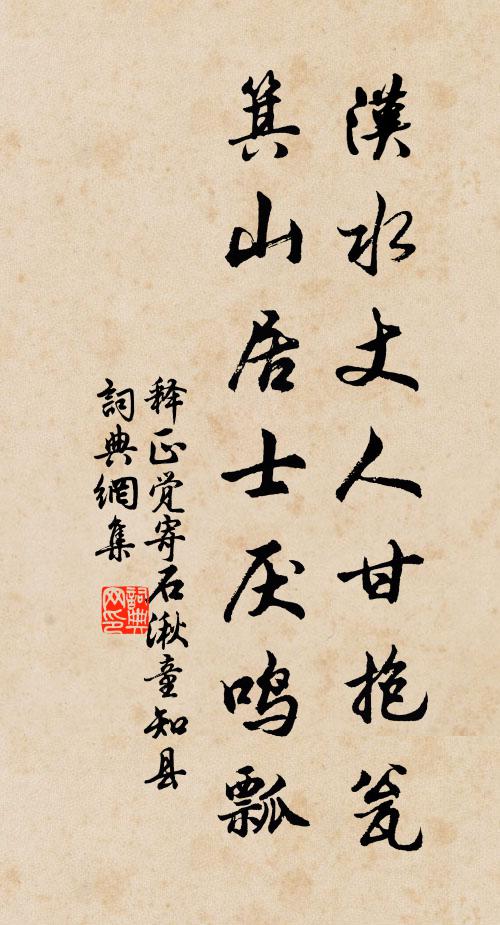 漢水丈人甘抱瓮
箕山居士厌鸣瓢
释正觉寄石湫童知县
詞典網集
詞典网印